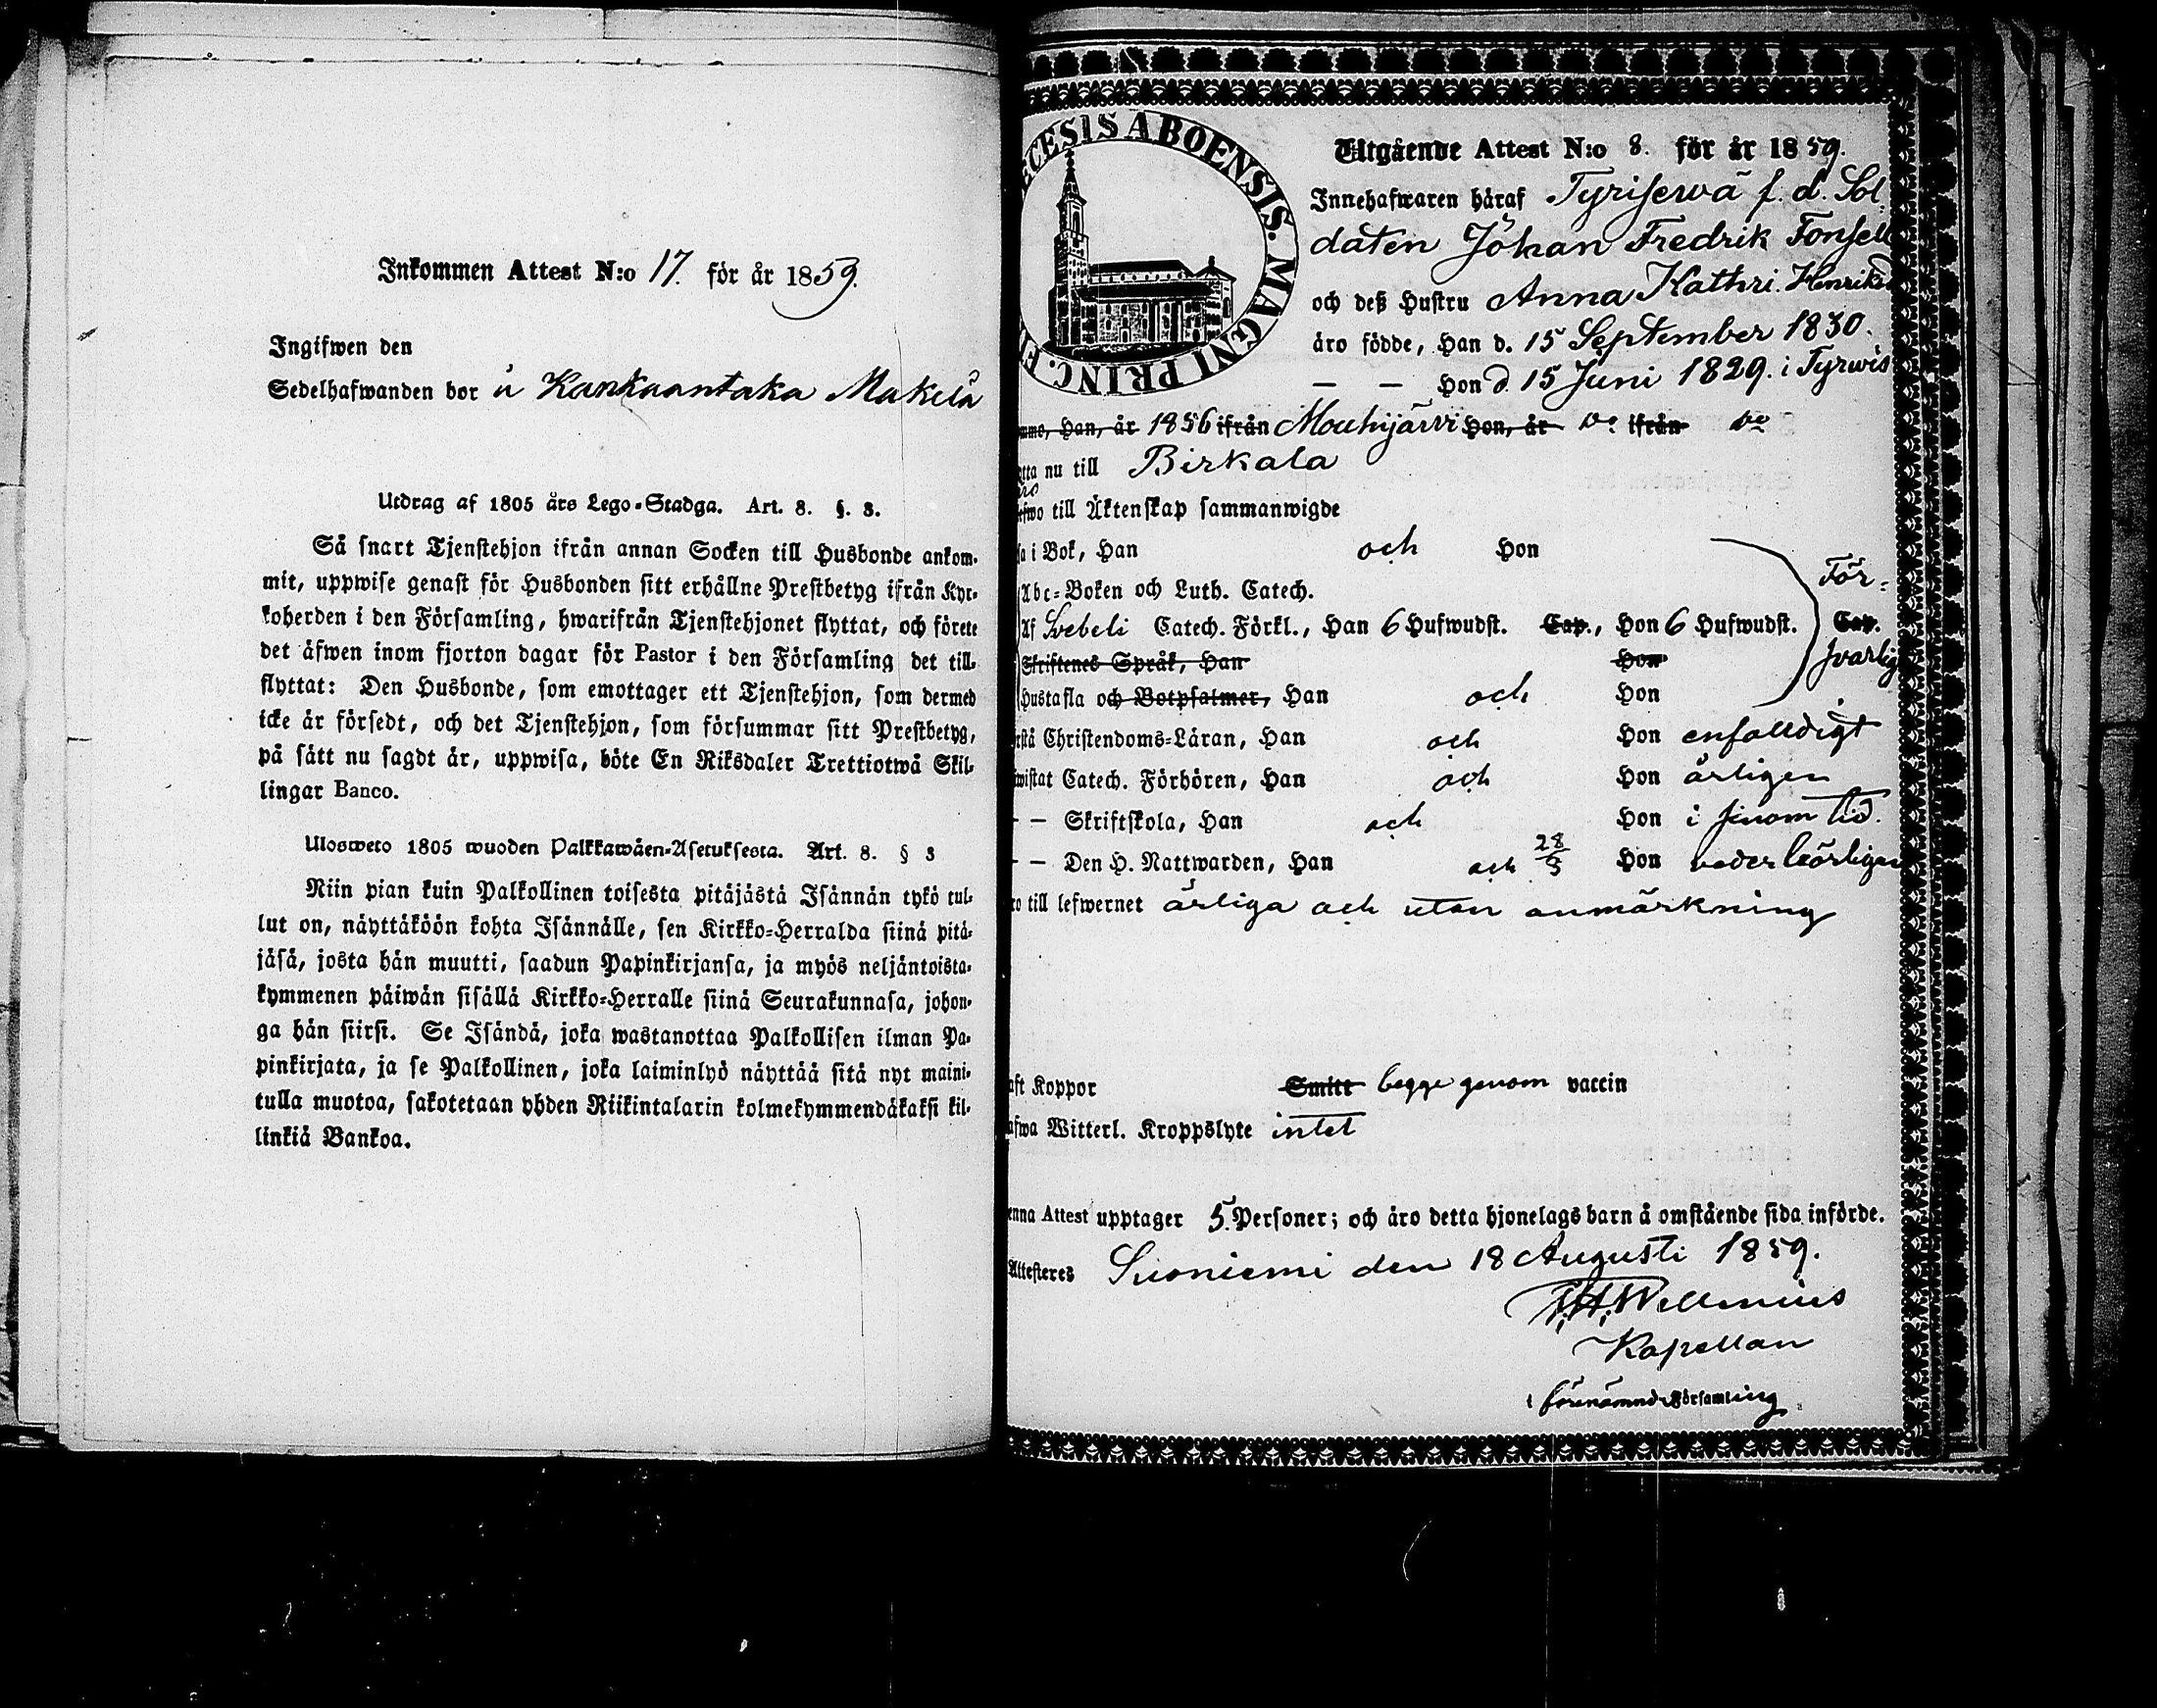 Inkommen Attest N:o 17. för år 1859.
Ingifwen den
Sedelhafwanden bor å Kankaantaka Mäkelä
Utdrag af 1805 års Lego-Stadga. Art. 8. §. 3.
Så snart Tjenstehjon ifrån annan Socken till Husbonde ankom-
mit, uppwise genast för Husbonden sitt erhållne Prestbetyg ifrån Kyr-
koherden i den Församling, hwarifrån Tjenstehjonet flyttat, och förete
det äfwen inom fjorton dagar för Pastor i den Församling det till-
flyttat: Den Husbonde, som emottager ett Tjenstehjon, som dermed
icke är försedt, och det Tjenstehjon, som försummar sitt Prestbetyg,
på sätt nu sagdt är, uppwisa, böte En Riksdaler Trettiotwå Skil-
lingar Banco.
Ulosweto 1805 wuoden Palkkawäen-Asetuksesta. Art. 8. § 3
Niin pian kuin Palkollinen toisesta pitäjästä Isännän tykö tul-
lut on, näyttäköön kohta Isännälle, sen Kirkko-Herralda siinä pitä-
jäsä, josta hän muutti, saadun Papinkirjansa, ja myös neljäntoista-
kymmenen päiwän sisällä Kirkko-Herralle siinä Seurakunnasa, johon-
ga hän siirsi. Se Isändä, joka wastanottaa Palkollisen ilman Pa-
pinkirjata, ja se Palkollinen, joka laiminlyö näyttää sitä nyt maini-
tulla muotoa, sakotetaan yhden Riikintalarin kolmekymmendäkaksi kil-
linkiä Bankoa.
CESIS ABOENSIS. MAGNI PRINC.
Utgående Attest N:o 8. för år 1859.
Innehafwaren häraf Tyriservä f. d. Sol-
daten Johan Fredrik Fonsell
och deß Hustru Anna Kathri. Henriksd
äro födde, Han d. 15 September 1830.
— — Hon d. 15 Juni 1829. i Tyrwis
Han, år 1856 ifrån Mouhijärvi Hon, år do ifrån do
nu till Birkala
äro
till Äktenskap sammanwigde
i Bok, Han och Hon
Abc-Boken och Luth. Catech. För-
Af Svebeli Catech. Förkl., Han 6 Hufwudst. Cap., Hon 6 Hufwudst. Cap.
Skriftenes Språk, Han Hon svarlig
Hustafla och Botpsalmer, Han och Hon
Christendoms-Läran, Han och Hon enfalldigt
Catech. Förhören, Han och Hon årligen
— — Skriftskola, Han och Hon i sinom tid.
— — Den H. Nattwarden, Han och 28/8 Hon vederbörligen
till lefwernet ärliga och utan anmärkning
Koppor Smitt begge genom vaccin
Witterl. Kroppslyte intet
Attest upptager 5. Personer; och äro detta hjonelags barn å omstående sida införde.
Attesteres Suoniemi den 18 Augusti 1859.
Wellenius
Kapellan
i förenämnd Församling